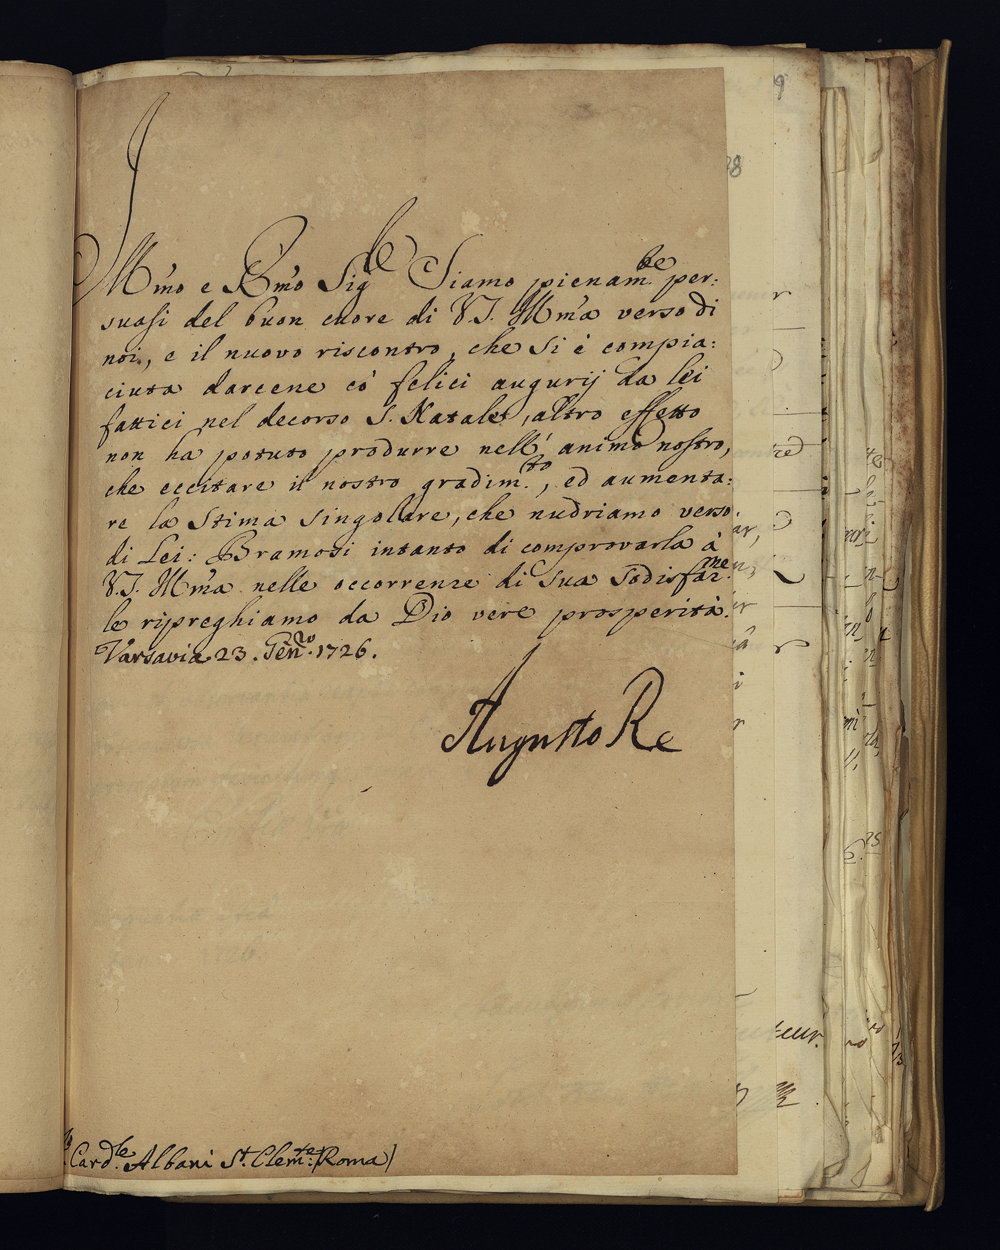 Illmo e Rmo Sig.le Siamo pienam.te per:
suasi del buon cuore di V.S. Illma verso di
noi, e il nuovo riscontro, che si è compia:
ciuta darcene cò felici augurij da lei
fattici nel decorso S. Natale, altro effetto
non ha potuto produrre nell' animo nostro,
che eccitare il nostro gradim.to, ed aumenta:
re la stima singolare, che nudriamo verso
di Lei: Bramosi intanto di comprovarla à
V.S. Illma nelle occorrenze di sua sodisfaz.ne
le ripreghiamo da Dio vere prosperità.
Varsavia 23. Gen.ro 1726.
Augusto Re
Card.le Albani St. Clem.te (Roma)